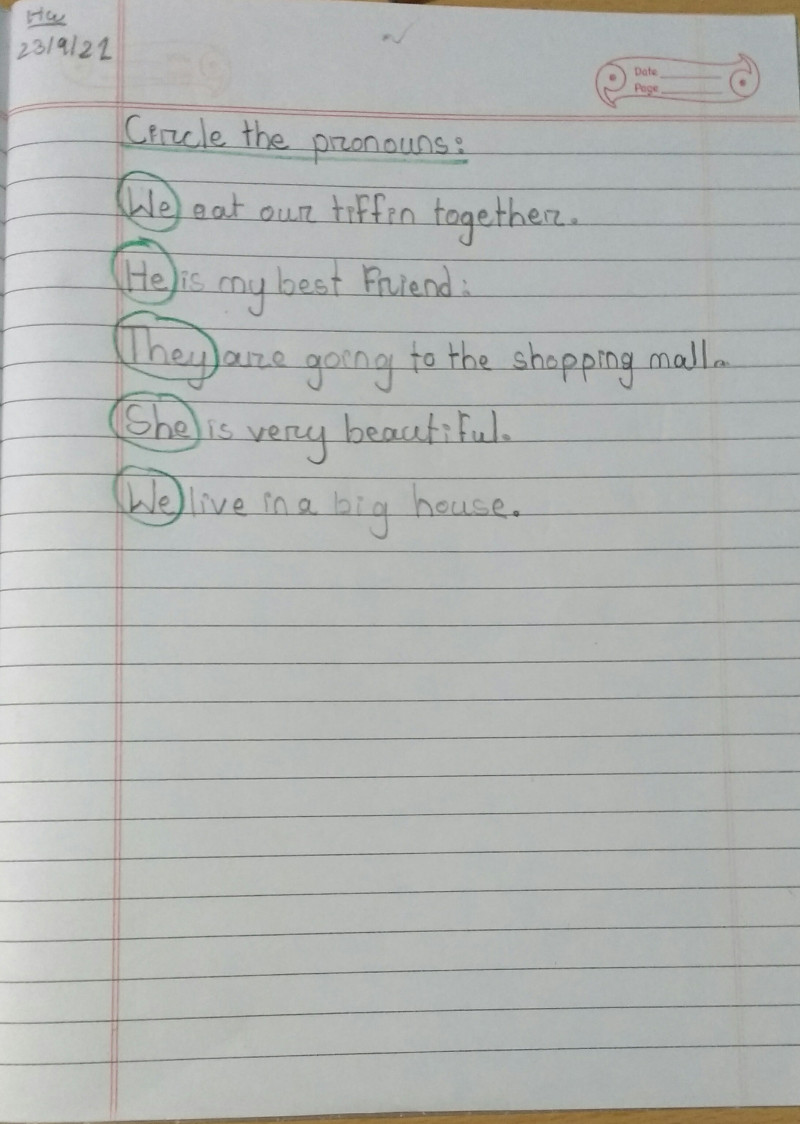 Hw
23/9/21
Date
Page
Circle the pronouns:
We eat our tiffin together.
He is my best Friend:
They are going to the shopping mall.
She is very beautiful.
We live in a big house.